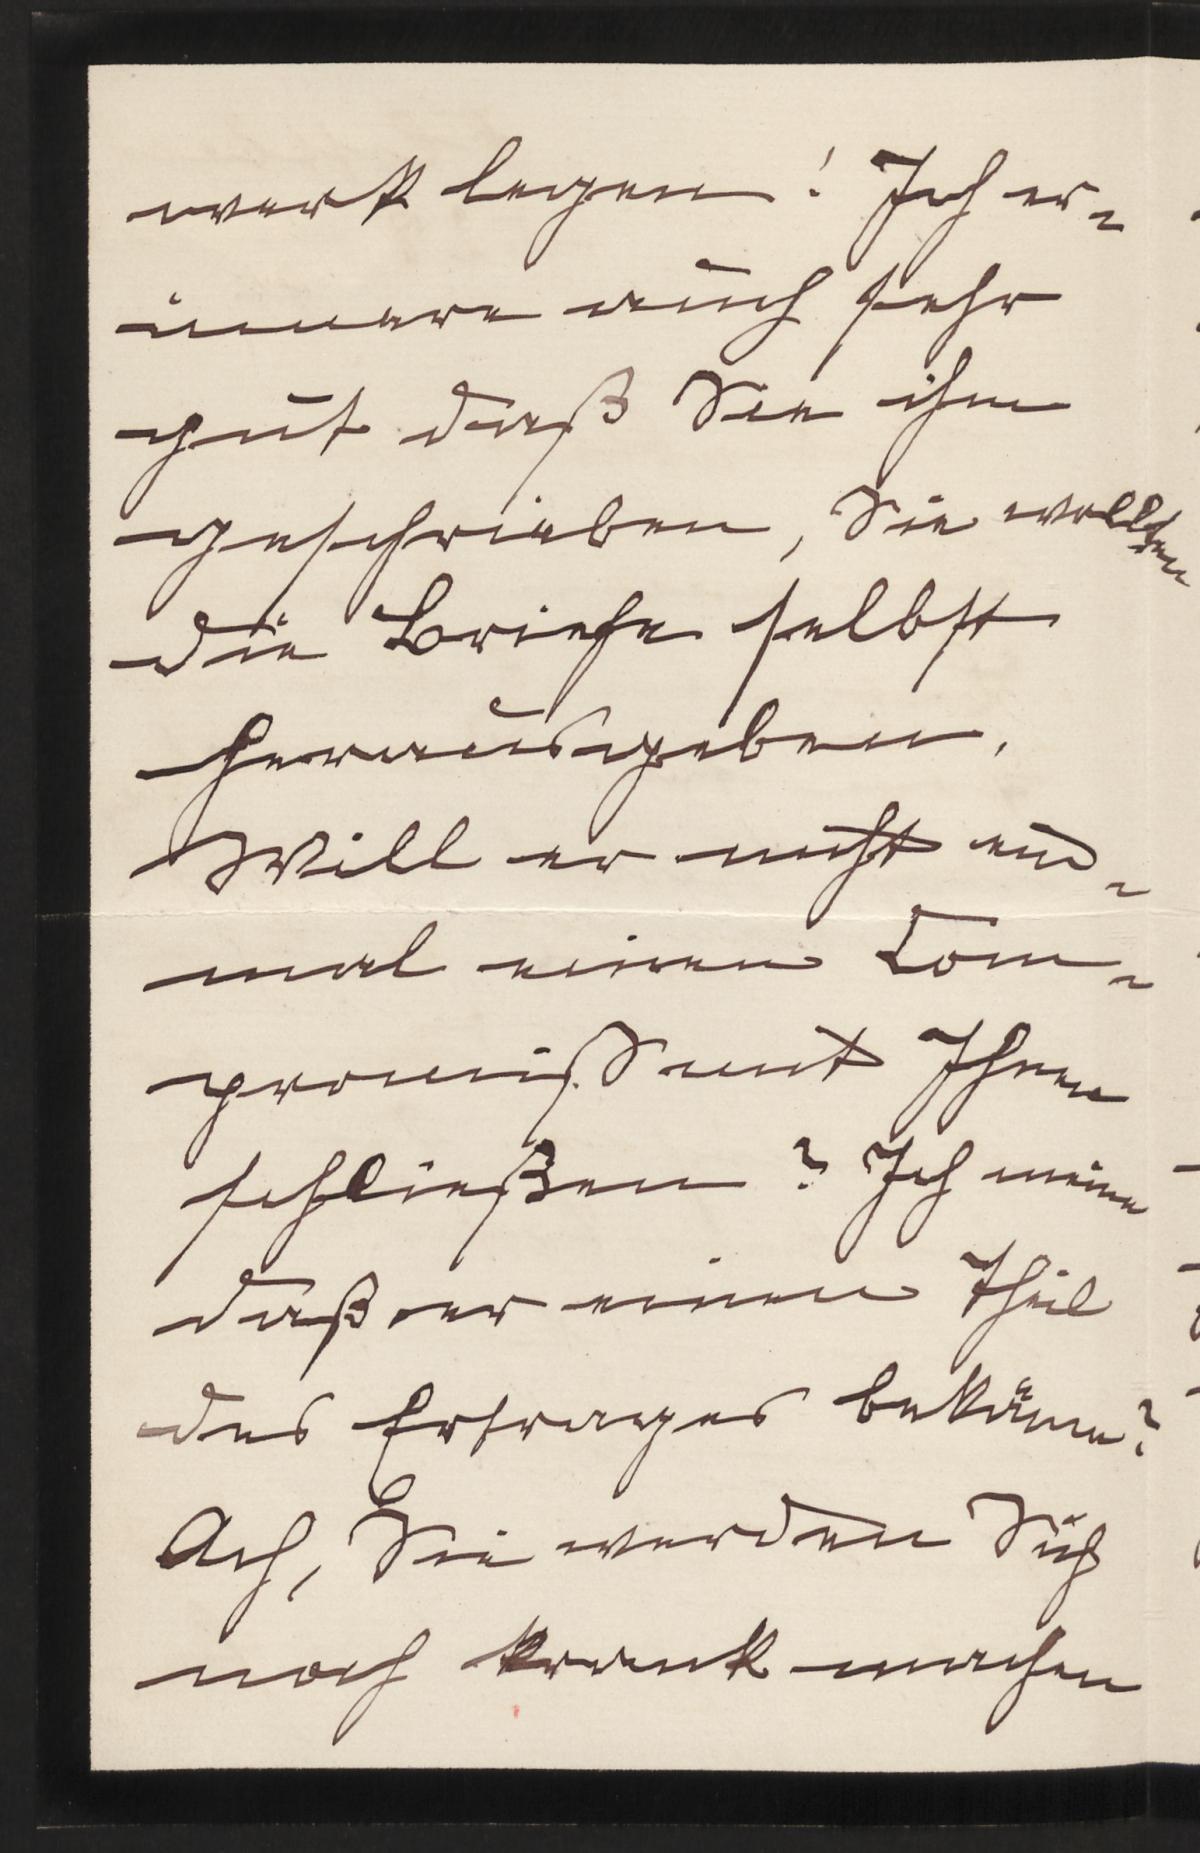 werk legen! Ich er-
innere auch sehr
gut daß Sie ihm
geschrieben, Sie wollten
die Briefe selbst
herausgeben.
Will er nicht ein-
mal einen Com-
promiß mit Ihnen
schließen? Ich meine
daß er einen Theil
des Ertrages bekäme?
Ach, Sie werden Sich
noch krank machen